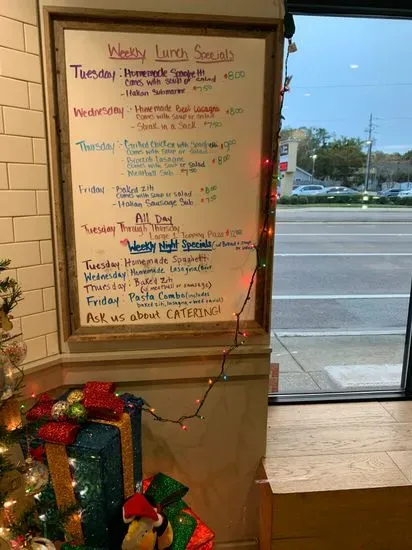 Weekly Lunch Specials
Tuesday: Homemade Spaghetti $8.00
comes with soup or salad
- Italian Submarine $7.50
Wednesday: Homemade Beef Lasagna $8.00
comes with soup or salad
- Steak in a Sack $7.50
Thursday: Grilled Chicken with Spaghetti $9.00
comes with soup or salad
- Broccoli Lasagna $8.00
comes with soup or salad
- Meatball Sub $7.50
Friday: Baked Ziti $8.00
comes with soup or salad
- Italian Sausage Sub $7.50
All Day
Tuesday Through Thursday
Large 1 Topping Pizza $12.00
Weekly Night Specials (w/ Bread +
Tuesday: Homemade Spaghetti
Wednesday: Homemade Lasagna (Beef
Thursday: Baked Ziti
(w/ meatball or sausage)
Friday: Pasta Combo (includes
baked ziti, lasagna, + beef ravioli)
ASK us about CATERING!